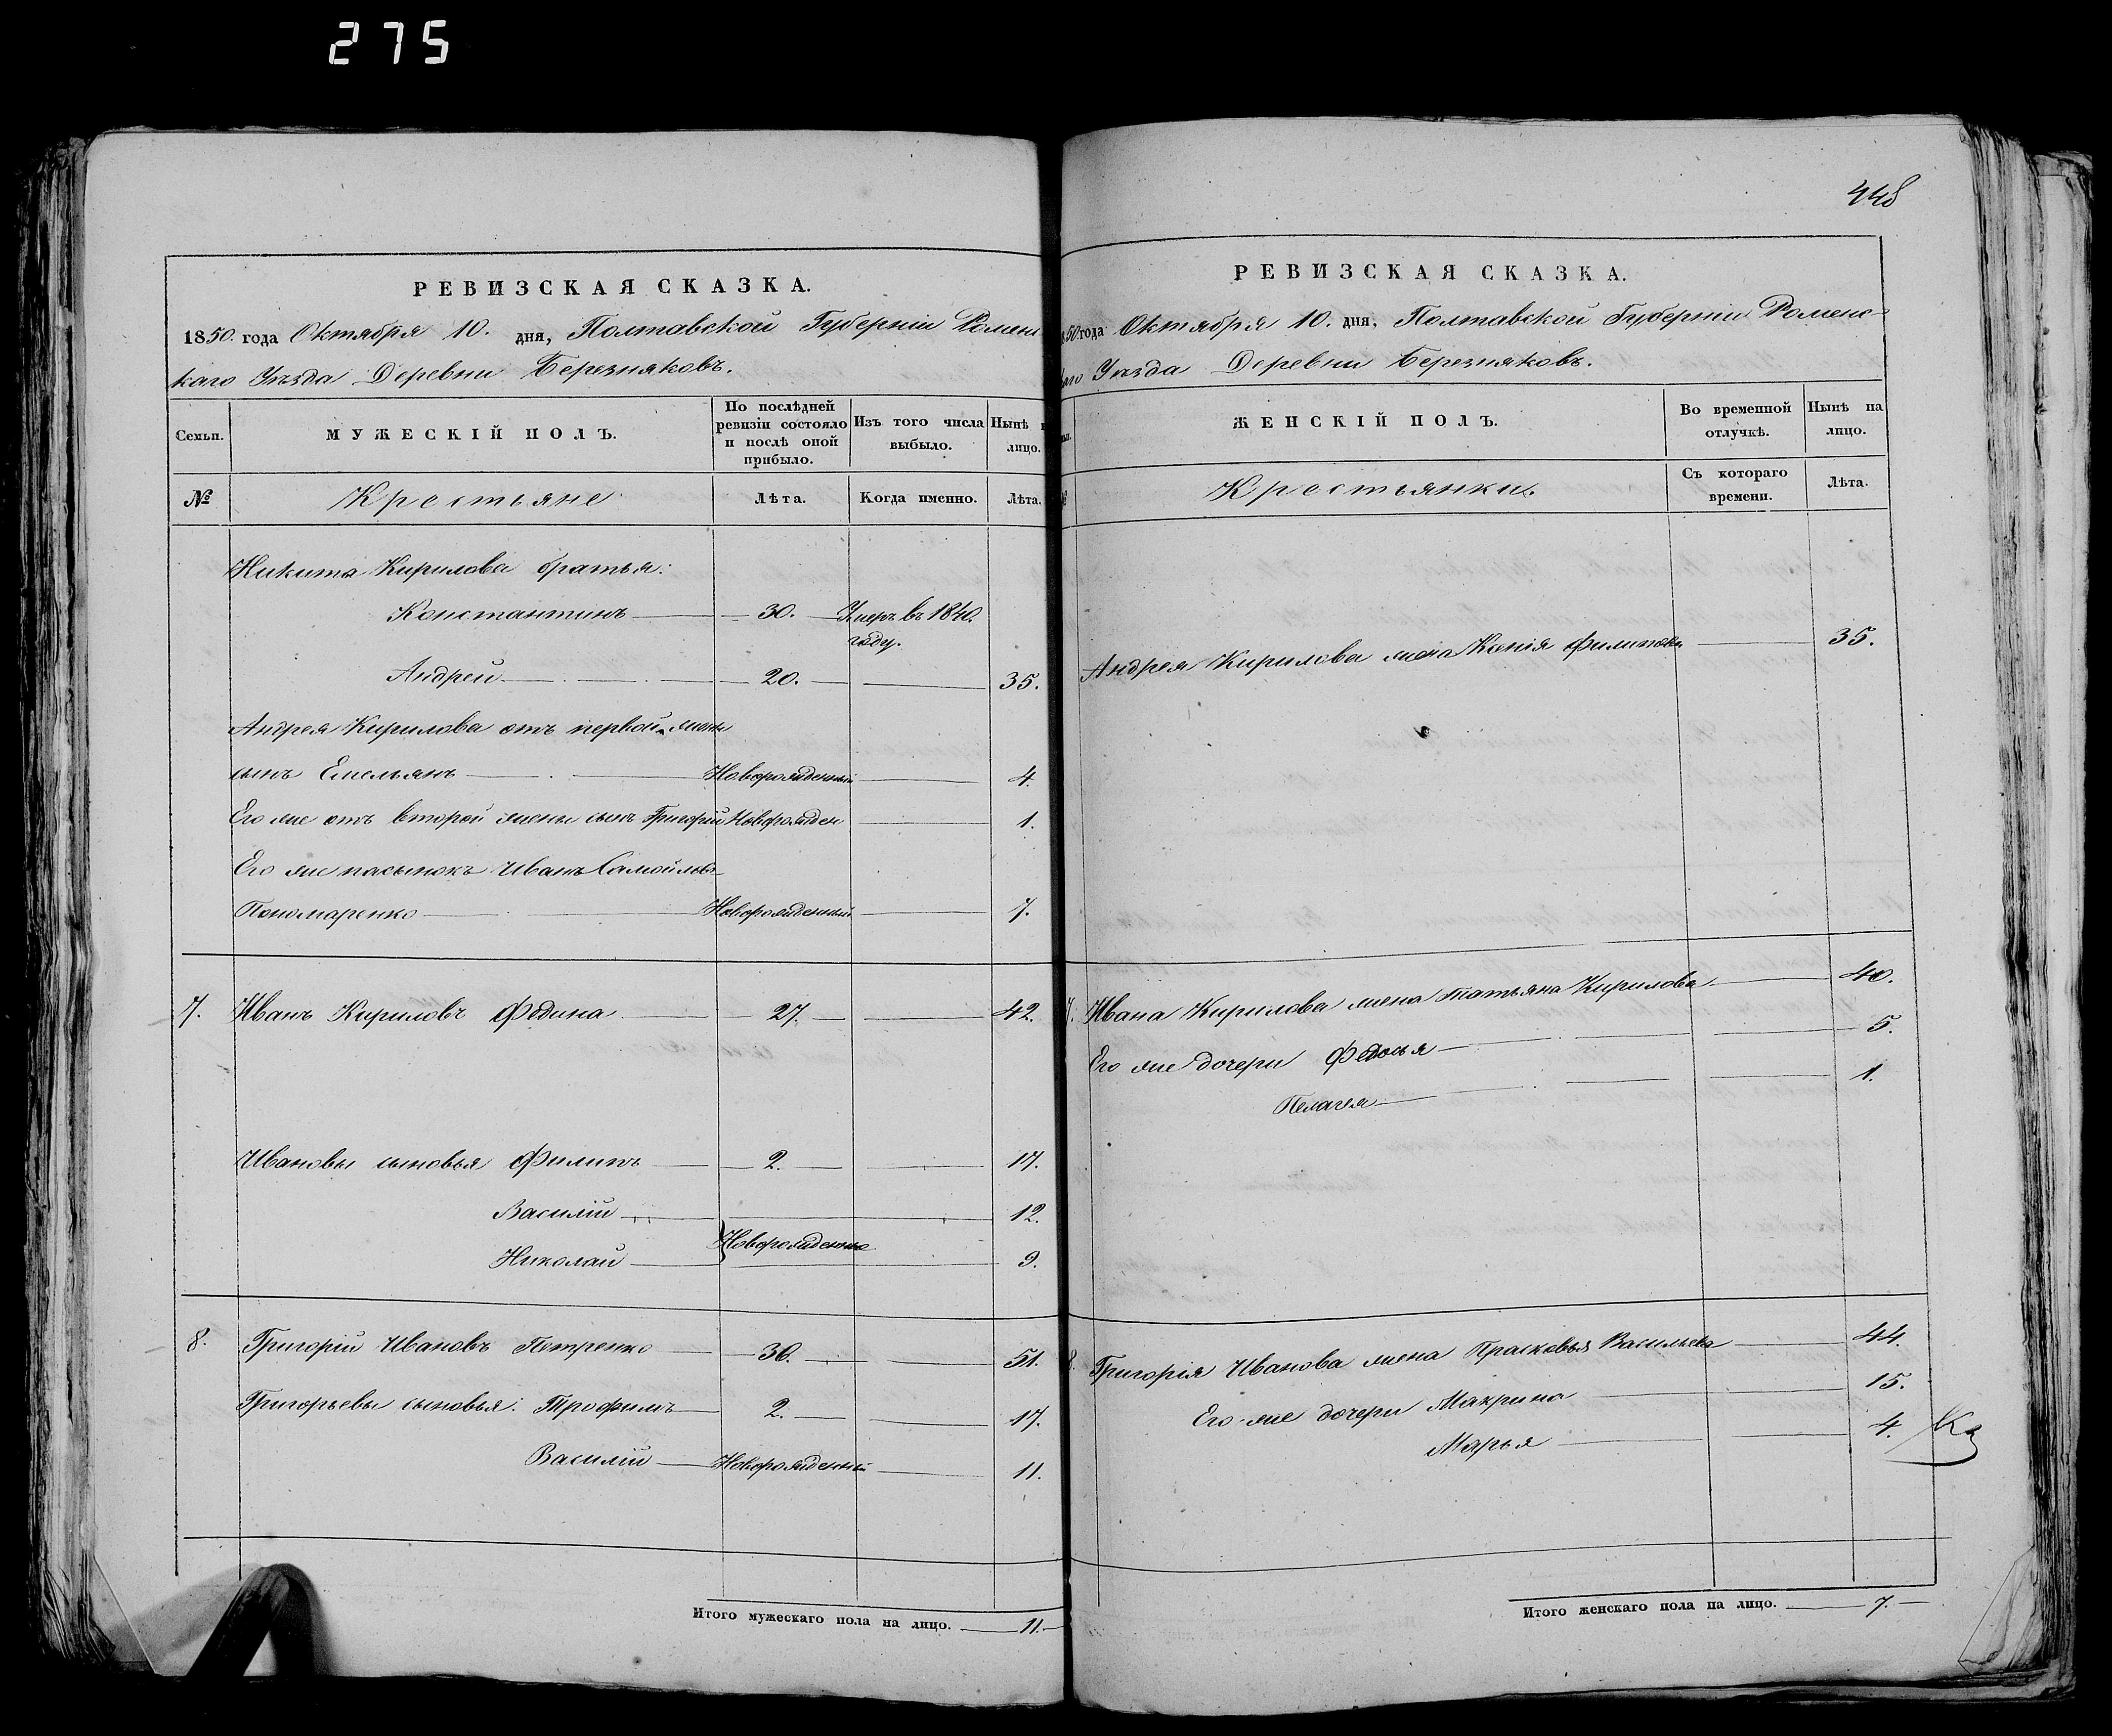 275
РЕВИЗСКАЯ СКАЗКА.
1850. года Октября 10. дня, Полтавской Губерніи Ромен
скаго Уѣзда Деревни Березняковъ.
Семьи. МУЖЕСКІЙ ПОЛЪ. По послѣдней ревизіи состояло и послѣ оной прибыло. Изъ того числа выбыло. Нынѣ на лицо.
№ Крестьяне Лѣта. Когда именно. Лѣта.
Никита Кирилова братья:
Константинъ 30. Умеръ въ 1840. году.
Андрей 20. 35.
Андрея Кирилова отъ первой жены
сынъ Емельянъ Новорожденный 4.
Его же отъ второй жены сынъ Григорій Новорожден 1.
Его же пасынокъ Иванъ Самойловъ
Пономаренко Новорожденный 7.
7. Иванъ Кириловъ Федина 27. 42.
Ивановы сыновья Филипъ 2. 17.
Василій 12.
Новорожденные
Николай 9.
8. Григорій Ивановъ Петренко 36. 51.
Григорьевы сыновья: Трофимъ 2. 17.
Василій Новорожденный 11.
Итого мужескаго пола на лицо. 11.
448
РЕВИЗСКАЯ СКАЗКА.
1850. года Октября 10. дня, Полтавской Губерніи Роменс-
каго Уѣзда Деревни Березняковъ.
ЖЕНСКІЙ ПОЛЪ. Во временной отлучкѣ. Нынѣ на лицо.
№ Крестьянки. Съ котораго времени. Лѣта.
Андрея Кирилова жена Ксенія Филипова 35.
7. Ивана Кирилова жена Татьяна Кирилова 40.
Его же дочери Федосья 5.
Пелагея 1.
8. Григорія Иванова жена Прасковья Васильева 44.
Его же дочери Макрина 15.
Марья 4.
Итого женскаго пола на лицо. 7.